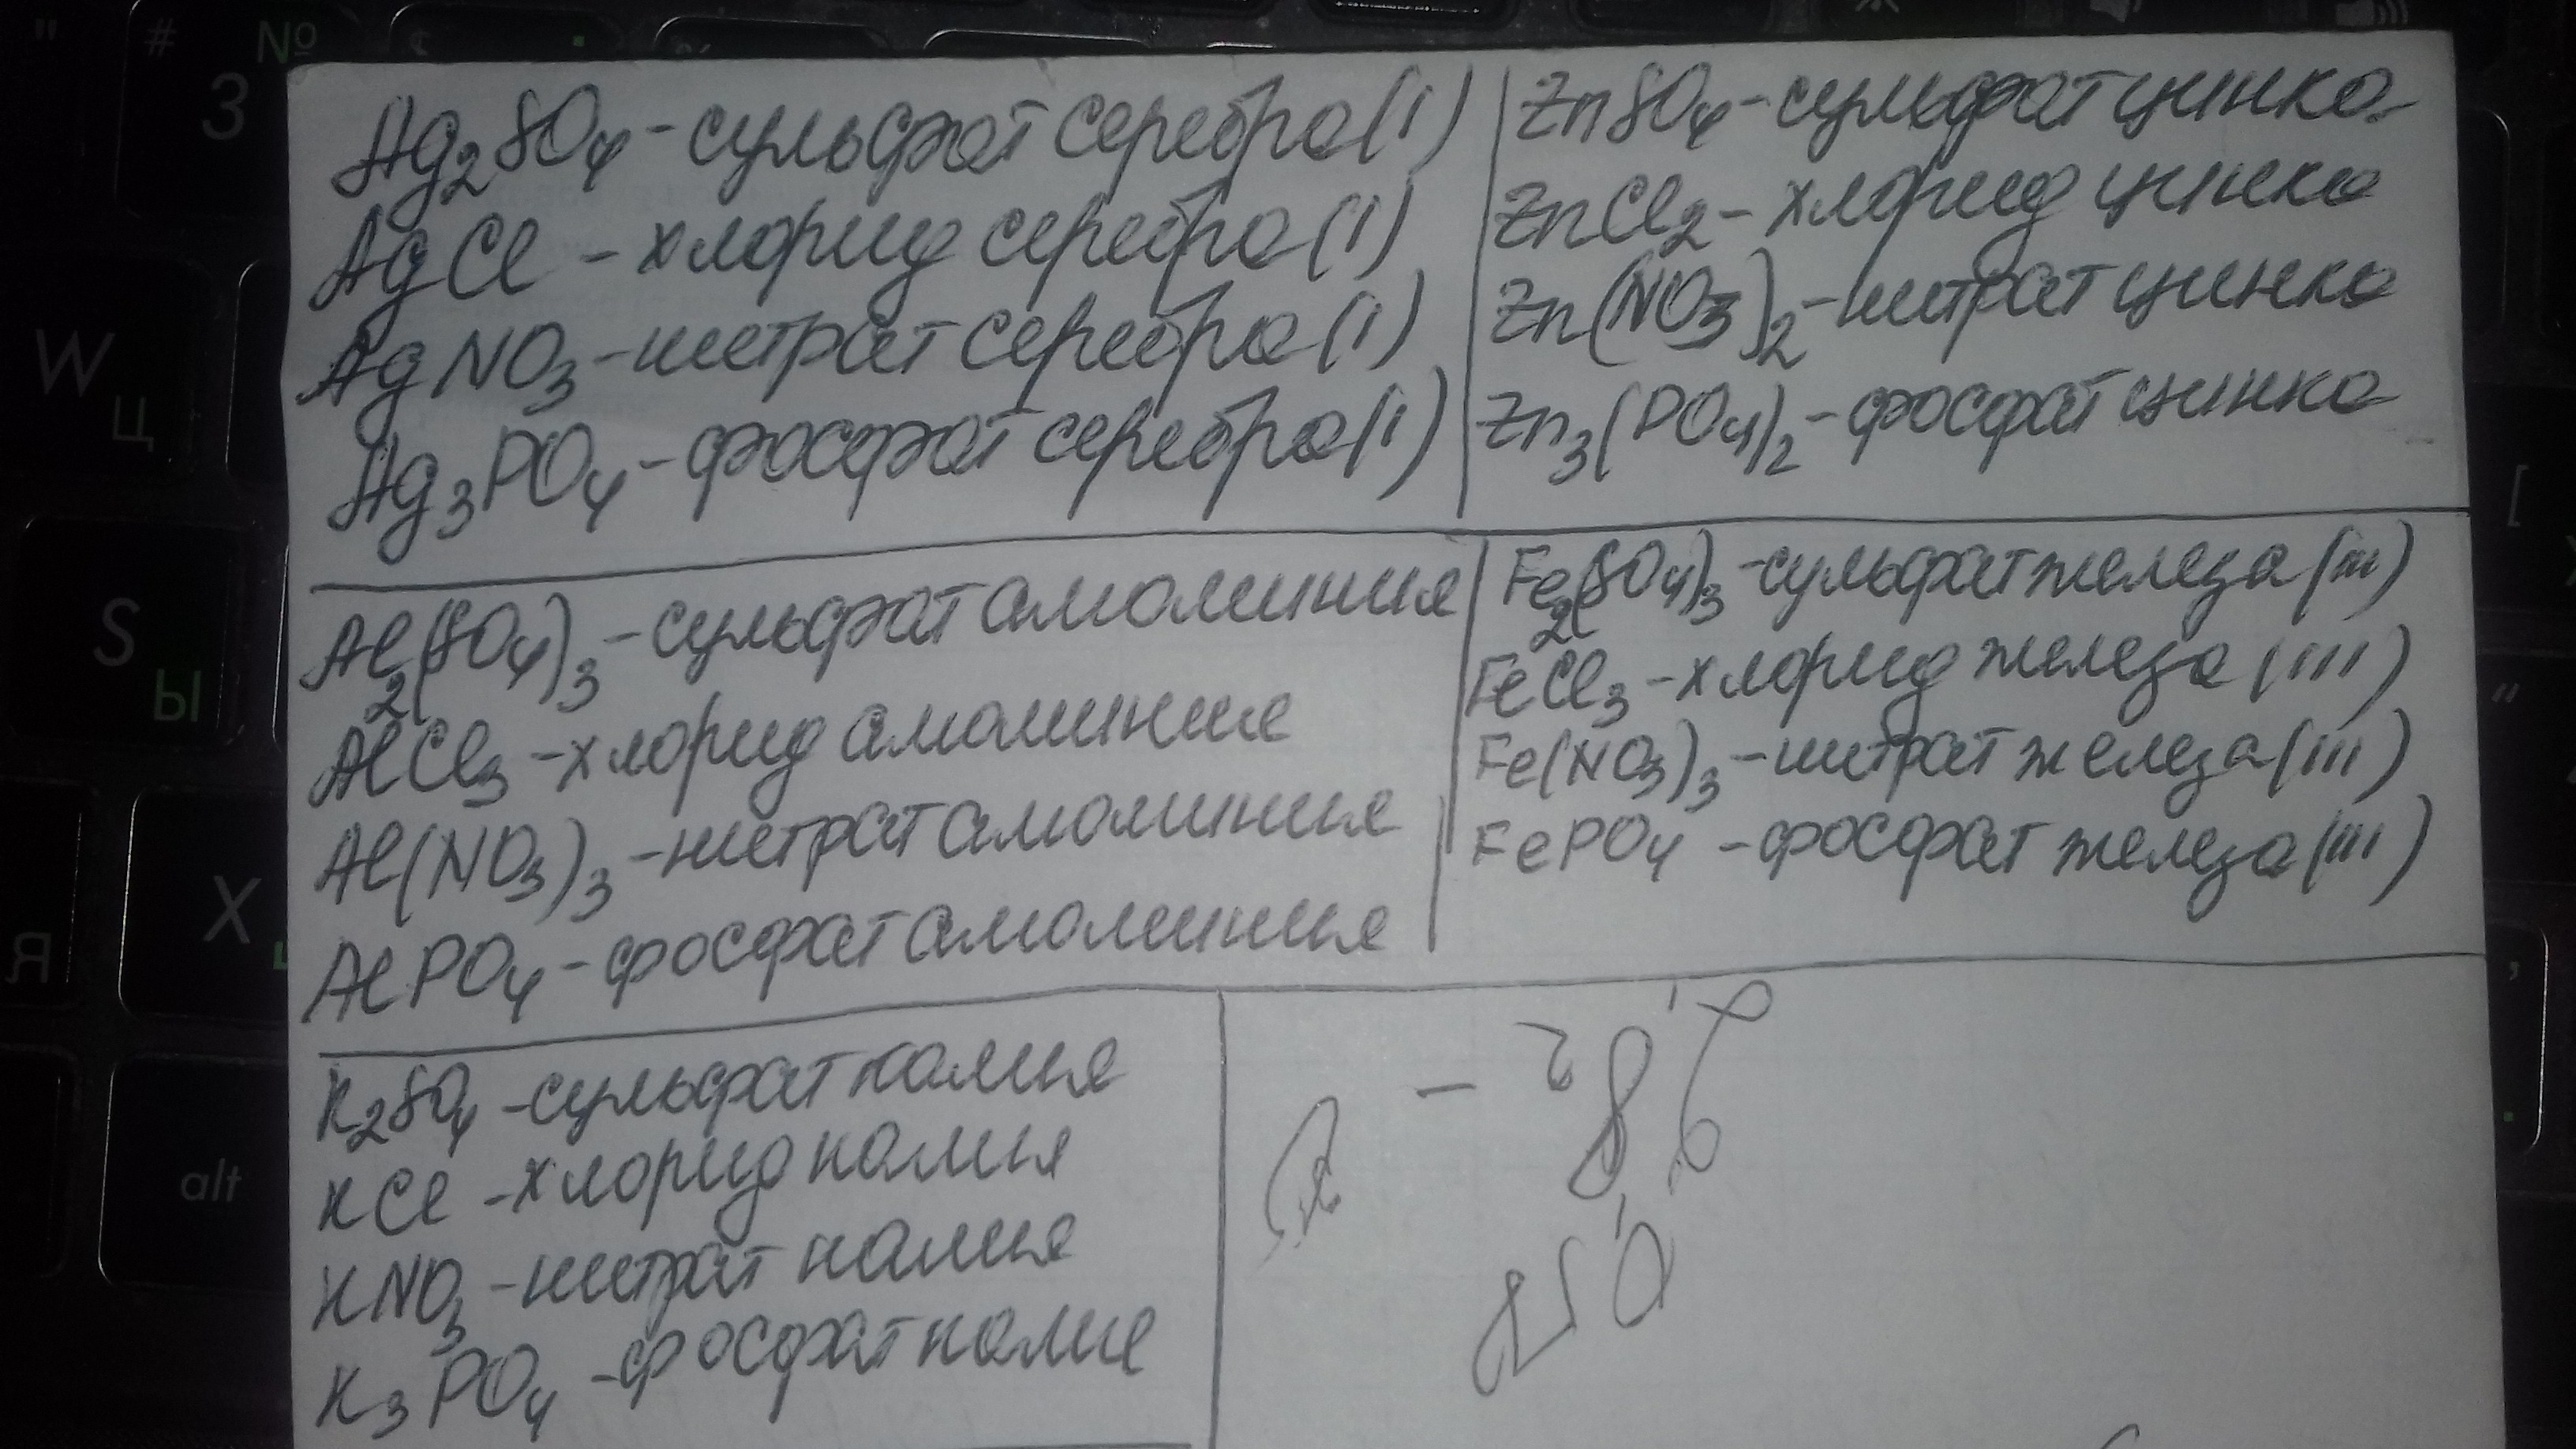 Ag2SO4 - сульфат серебра (I)
AgCl - хлорид серебра (I)
AgNO3 - нитрат серебра (I)
Ag3PO4 - фосфат серебра (I)
ZnSO4 - сульфат цинка
ZnCl2 - хлорид цинка
Zn(NO3)2 - нитрат цинка
Zn3(PO4)2 - фосфат цинка
Al2(SO4)3 - сульфат алюминия
AlCl3 - хлорид алюминия
Al(NO3)3 - нитрат алюминия
AlPO4 - фосфат алюминия
Fe2(SO4)3 - сульфат железа (III)
FeCl3 - хлорид железа (III)
Fe(NO3)3 - нитрат железа (III)
FePO4 - фосфат железа (III)
K2SO4 - сульфат калия
KCl - хлорид калия
KNO3 - нитрат калия
K3PO4 - фосфат калия
# №
3
W
Ц
S
Ы
Я
X
alt
[